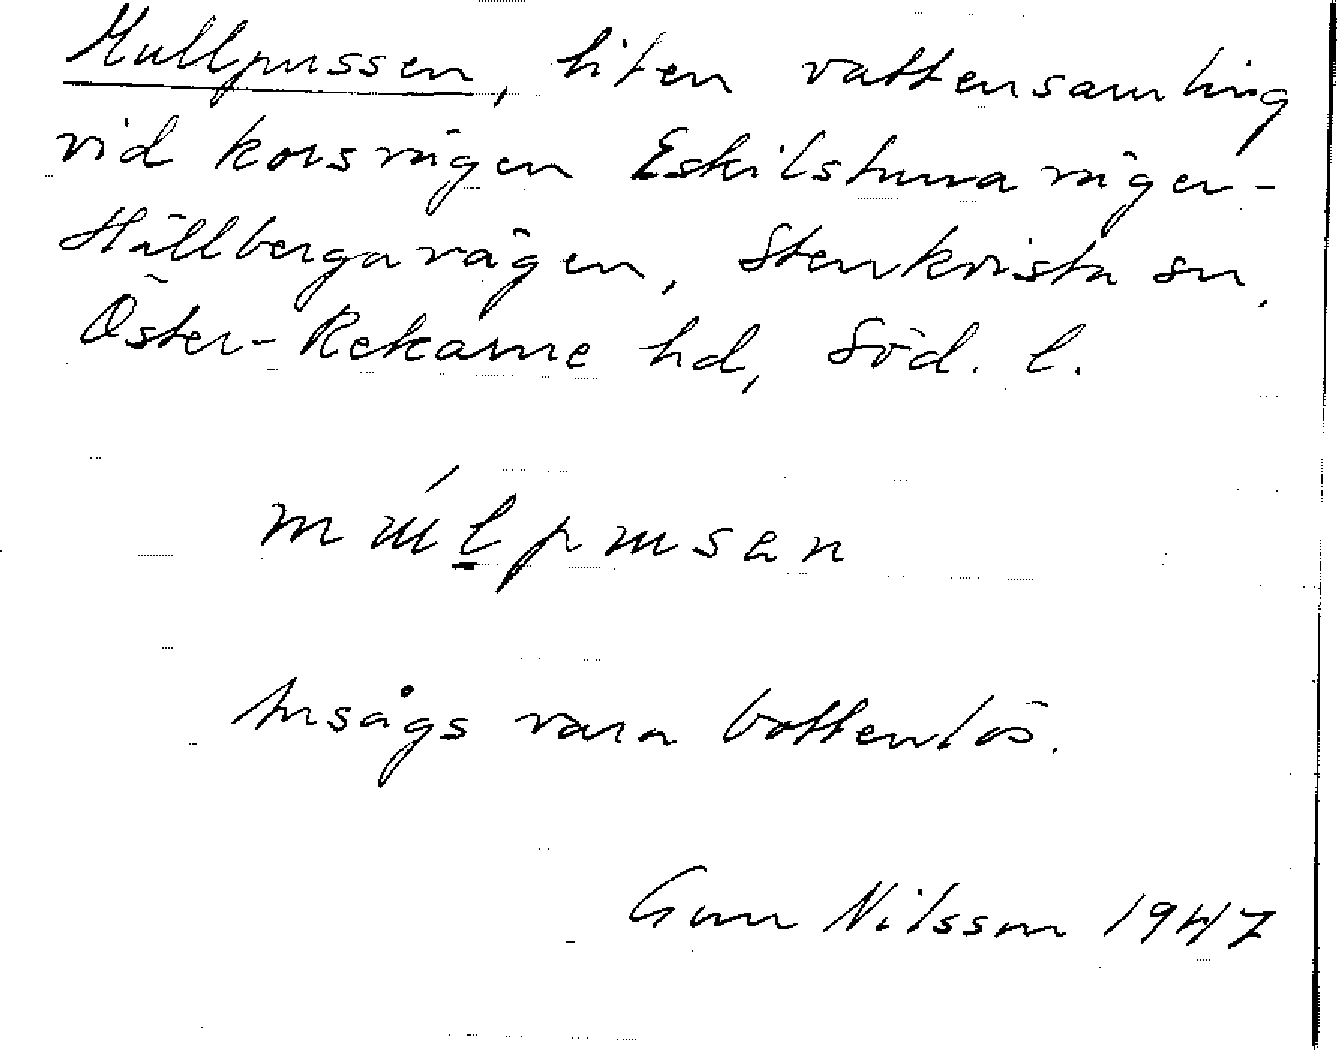 Mullpussen, liten vattensamling
vid korsvägen Eskilstunavägen-
Hällbergavägen, Stenkvista sn,
Öster-Rekarne hd, Söd. l.
ansågs vara bottenlös.
Gun Nilsson 1947